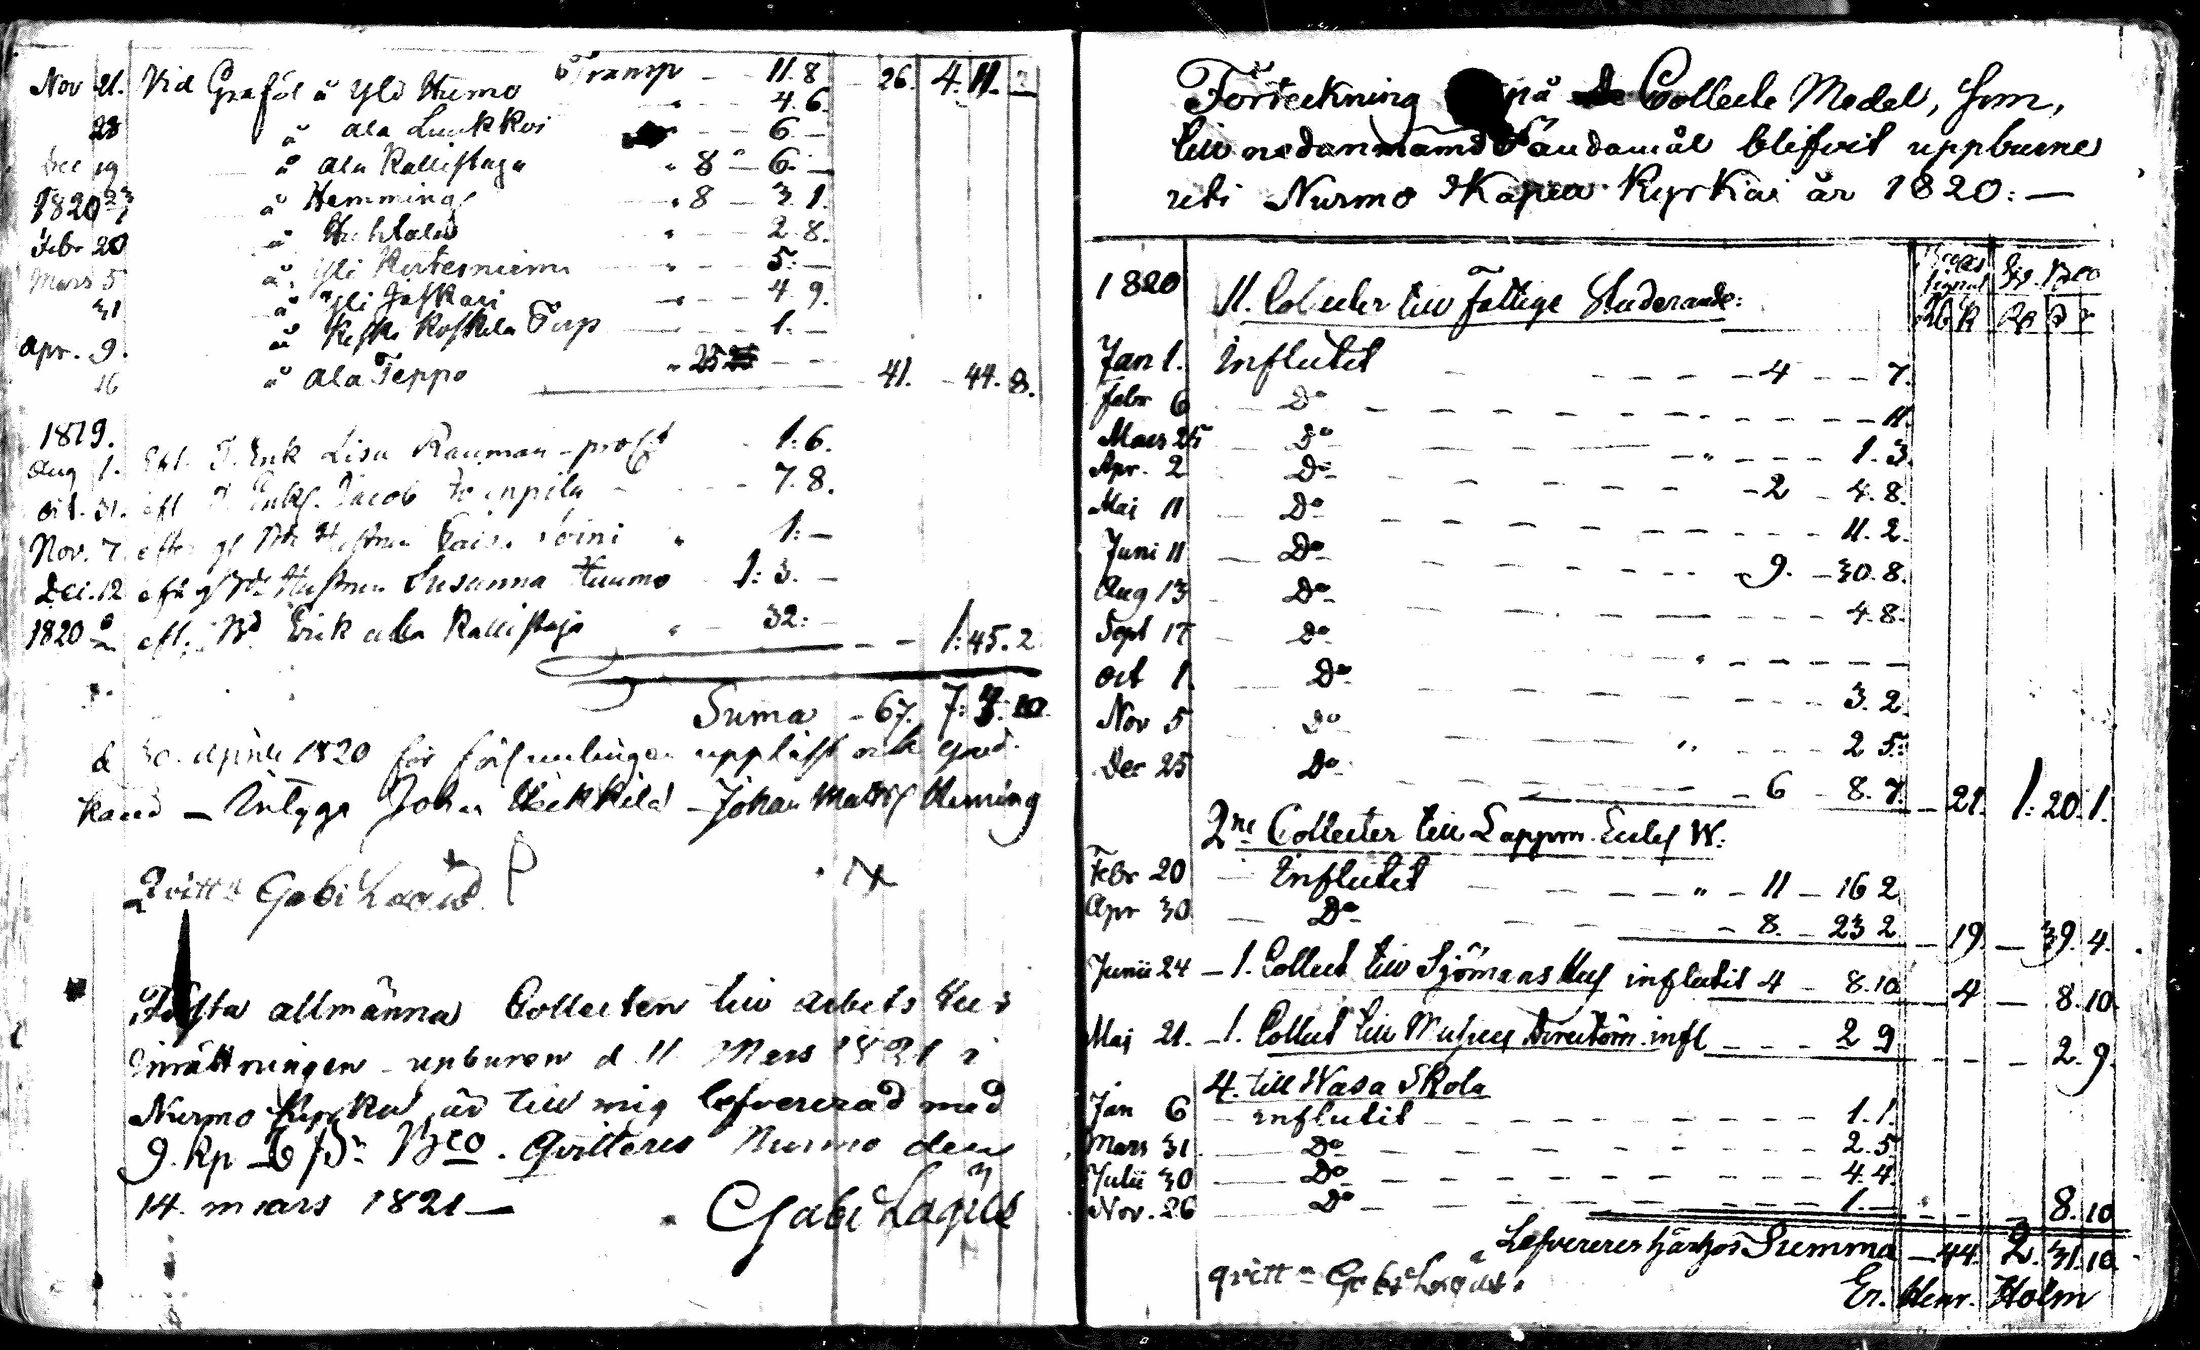 Transp - - 11. 8 - 26. 4. 11. 2
Nov 21. Vid Graföl å Yli Humo " - - 4. 6.
28 å Ala Luukkoi - - 6 -
Dec 19 å Ala Kallistaja " 8 - 6. -
1820 23/1 å Hemming " 8 - 3. 1.
Febr 20 å Huhtala " - - 2. 8.
Mars 5 å Yli Kertesniemi " - - 5: -
31 å Yli Jaskari - - 4. 9.
Apr. 9. å Keski Koskela Torp - 1. -
16 å Ala Teppo " 25 - - 41. - 44. 8.
1819.
Aug 1. Eft. Enk Lisa Rauman - 1: 6.
Oct. 31. eft Jacob - - 7. 8.
Nov. 7. efter Hustrun Caisa " 1: -
Dec. 12 eft Hustrun Susanna Huumo - 1: 3. -
1820 eft. Erik ala Kallistaja " - 32: - - - 1: 45. 2
Suma - 67. 7: 3. 10
d 30 April 1820 för församlingen uppläst och god-
känd - Intyga Johan Heikkilä - Johan Matts Heming
Qvitt Gab: Lagus
Första allmänna Collecten till Arbets Hus
inrättningen upburen d 11 Mars 1821 i
Nurmo Kyrka är till mig lefvererad med
9. Kp 6 Bco. Qvitteres Nurmo den
14. mars 1821 -
Gab: Lagus
Förteckning på Collecte Medel, som,
till nedannämnde ändamål blifvit uppburne
uti Nurmo Kapell Kyrka år 1820: -
1820 11. Collecter till Fattige Studerande:
Jan 1. Influtit - - - - 4 - - 7.
Febr 6 Do - - - - 11.
Mars 25 Do - " - - - 1. 3.
Apr. 2 Do - - - 2 - 4. 8.
Maj 11 Do - - - - 11. 2.
Juni 11 Do - - - 9. - 30. 8.
Aug 13 Do - - - - 4. 8.
Sept 17 Do " - - - -
Oct 1. Do - - - - 3. 2.
Nov 5 Do " - - - 2 5.
Dec 25 Do - - 6 8. 7. - 21. 1: 20. 1.
2ne Collecter till Lappm. Eccles W:
Febr 20 Influtit - - - " - 11 - 16 2
Apr 30 Do - - - 8. - 23 2 - 19. - 39. 4.
Junii 24 - 1. Collect till Sjömans Hus influtit 4 - 8. 10 - 4 - 8. 10.
Maj 21. - 1. Collect till Musices Directörn infl - - - 2 9 - - 2. 9.
4. till Wasa Skola
Jan 6 - influtit - - - - 1. 1.
Mars 31 Do - - - - 2. 5
Julii 30 Do - - - - 4. 4.
Nov. 26 Do - - - - 1. - - - 8. 10
Lefvereres härhos Summa - 44. 2. 31. 10.
qvitt Gab: Lagus.
Er. Henr. Holm